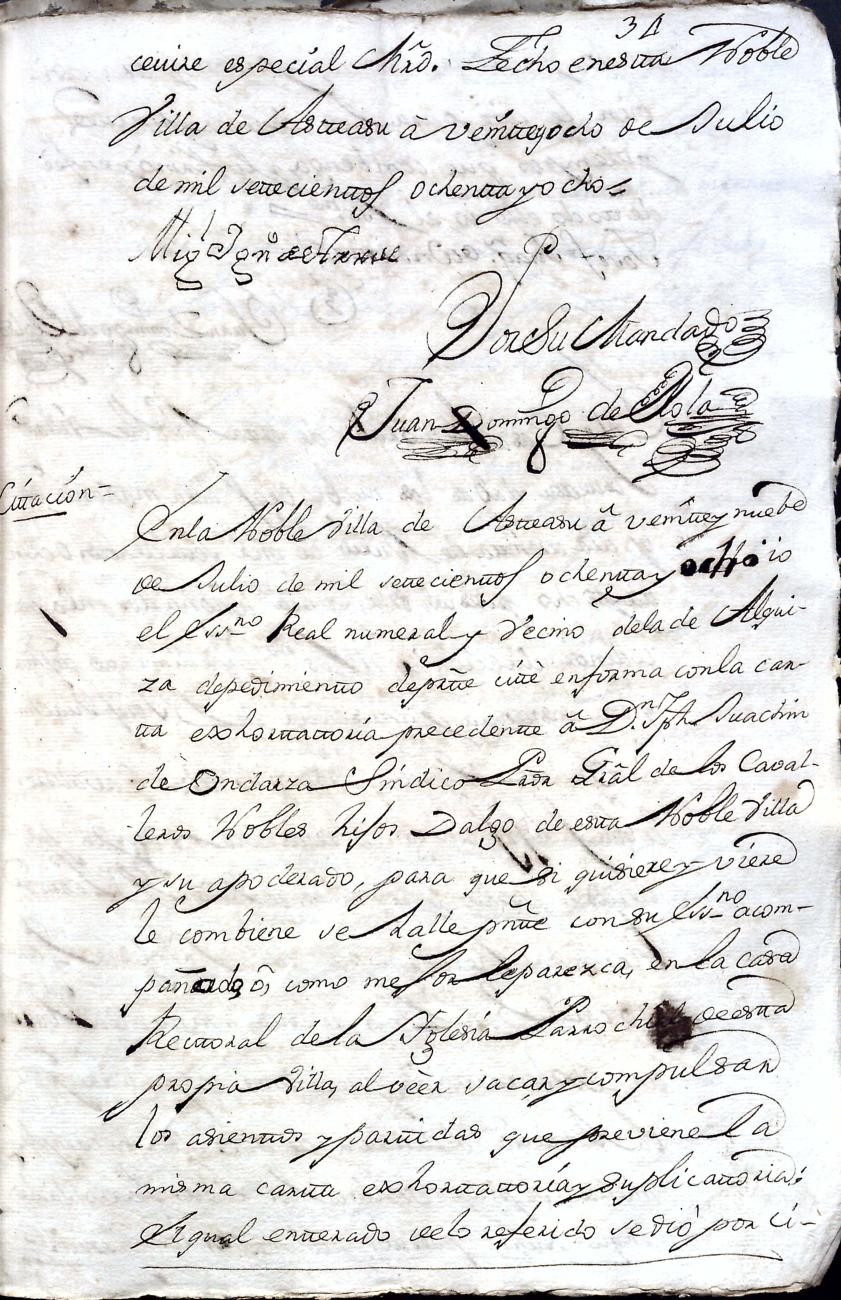 34
ceuire especial Mrd. Fecho en esta Noble
Villa de Asteasu à veinteyocho de Julio
de mil setecientos ochenta y ocho=
Migl Ignº de
Por Su Mandado
Juan Domingo de
Citacion=
En la Noble Villa de Asteasu à veinte y nuebe
de Julio de mil setecientos ochenta y ocho io
el Essno Real numeral y Vecino de la de Alqui-
za depedimiento de prte cité en forma con la car-
ta exhortatoria precedente à Dn Jph Juachin
de Ondarza Sindico Prdr Grâl de los Caval-
leros Nobles hijos Dalgo de esta Noble Villa
y su apoderado, para que si quisiere y viere
le combiene se halle pnte con su Essno acom-
pañado, ó, como mejor le parezca, en la casa
Rectoral de la Iglesia Parrochial de esta
propia Villa, al veèr sacar y compulsar
los asientos y partidas que previene la
misma carta exhortatoria y suplicatoria:
El qual enterado de lo referido se dió por ci-